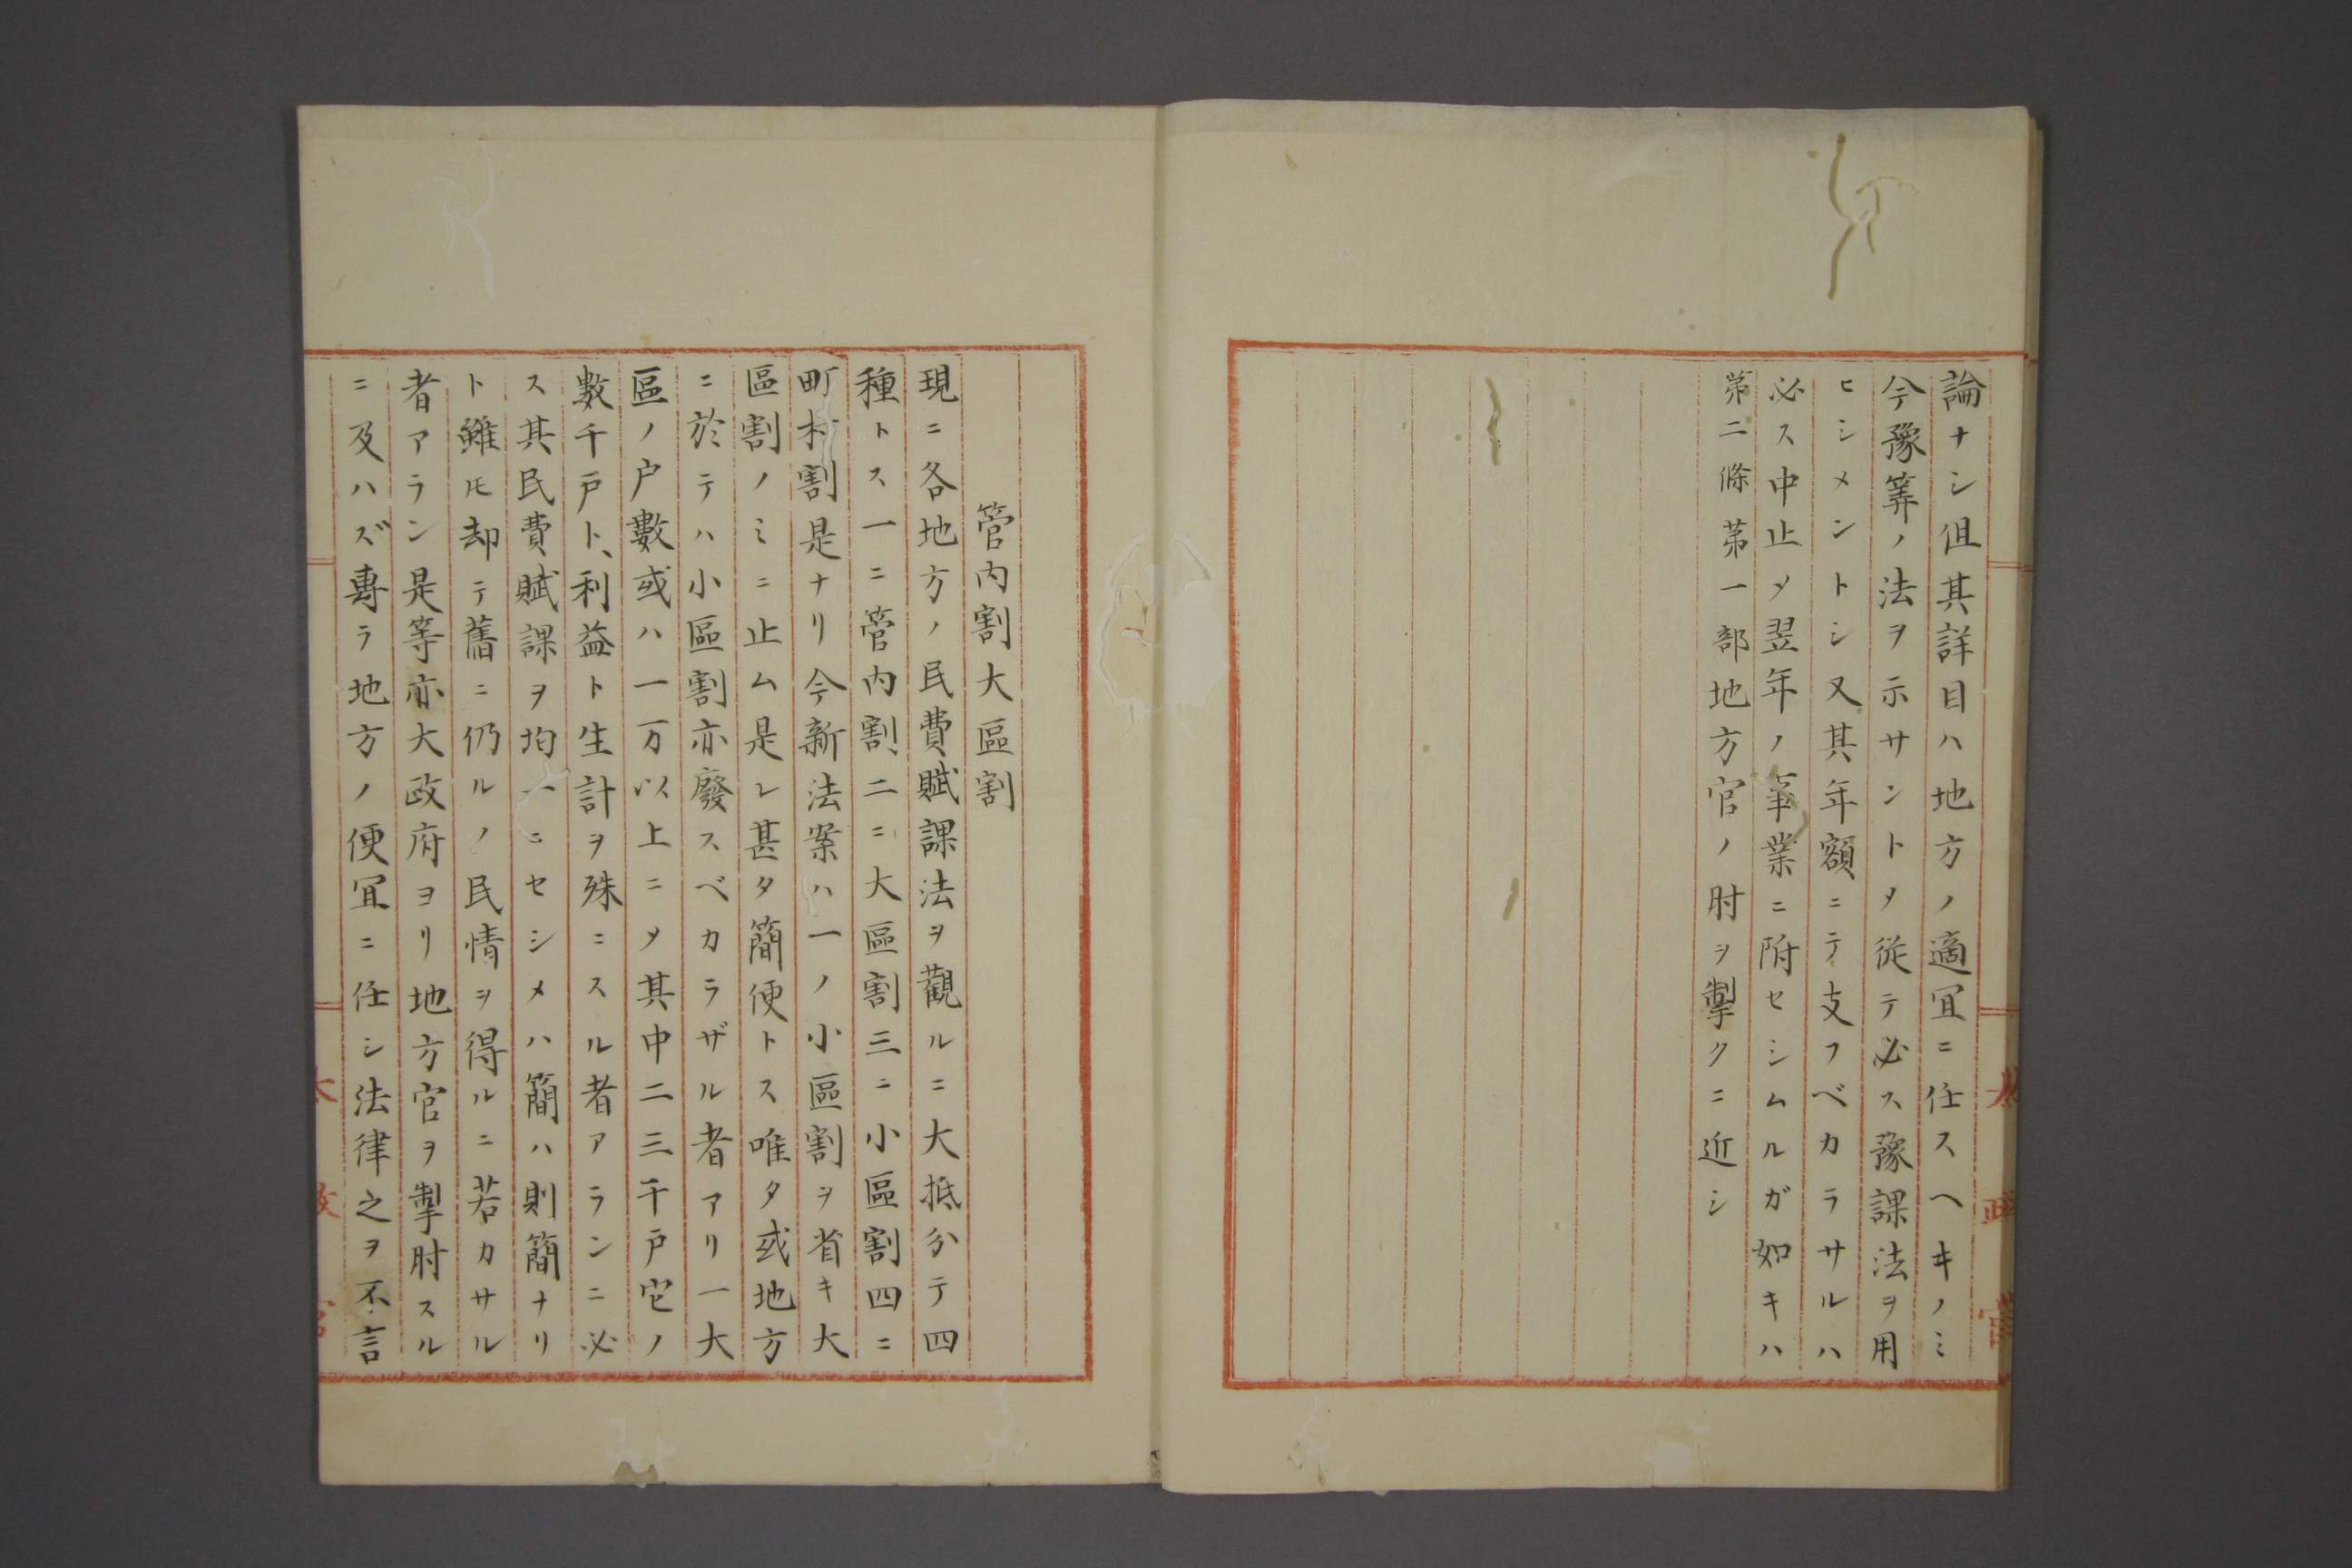 論ナシ但其詳目ハ地方ノ適宜ニ任スヘキノミ
今豫算ノ法ヲ示サントメ從テ必ス豫課法ヲ用
ヒシメントシ又其年額ニテ支フベカラサルハ
必ス中止メ翌年ノ事業ニ附セシムルガ如キハ
第二條第一部地方官ノ肘ヲ掣クニ近シ
太政官
管内割大區割
現ニ各地方ノ民費賦課法ヲ觀ルニ大抵分テ四
種トス一ニ管内割二ニ大區割三ニ小區割四ニ
町村割是ナリ今新法案ハ一ノ小區割ヲ省キ大
區割ノミニ止ム是レ甚タ簡便トス唯タ或地方
ニ於テハ小區割亦廢スベカラザル者アリ一大
區ノ戸數或ハ一万以上ニメ其中二三千戸它ノ
數千戸ト、利益ト生計ヲ殊ニスル者アランニ必
ス其民費賦課ヲ均一ニセシメハ簡ハ則簡ナリ
ト雖𪜈却テ舊ニ仍ルノ民情ヲ得ルニ若カサル
者アラン是等亦大政府ヨリ地方官ヲ掣肘スル
ニ及ハズ專ラ地方ノ便宜ニ任シ法律之ヲ不言
太政官